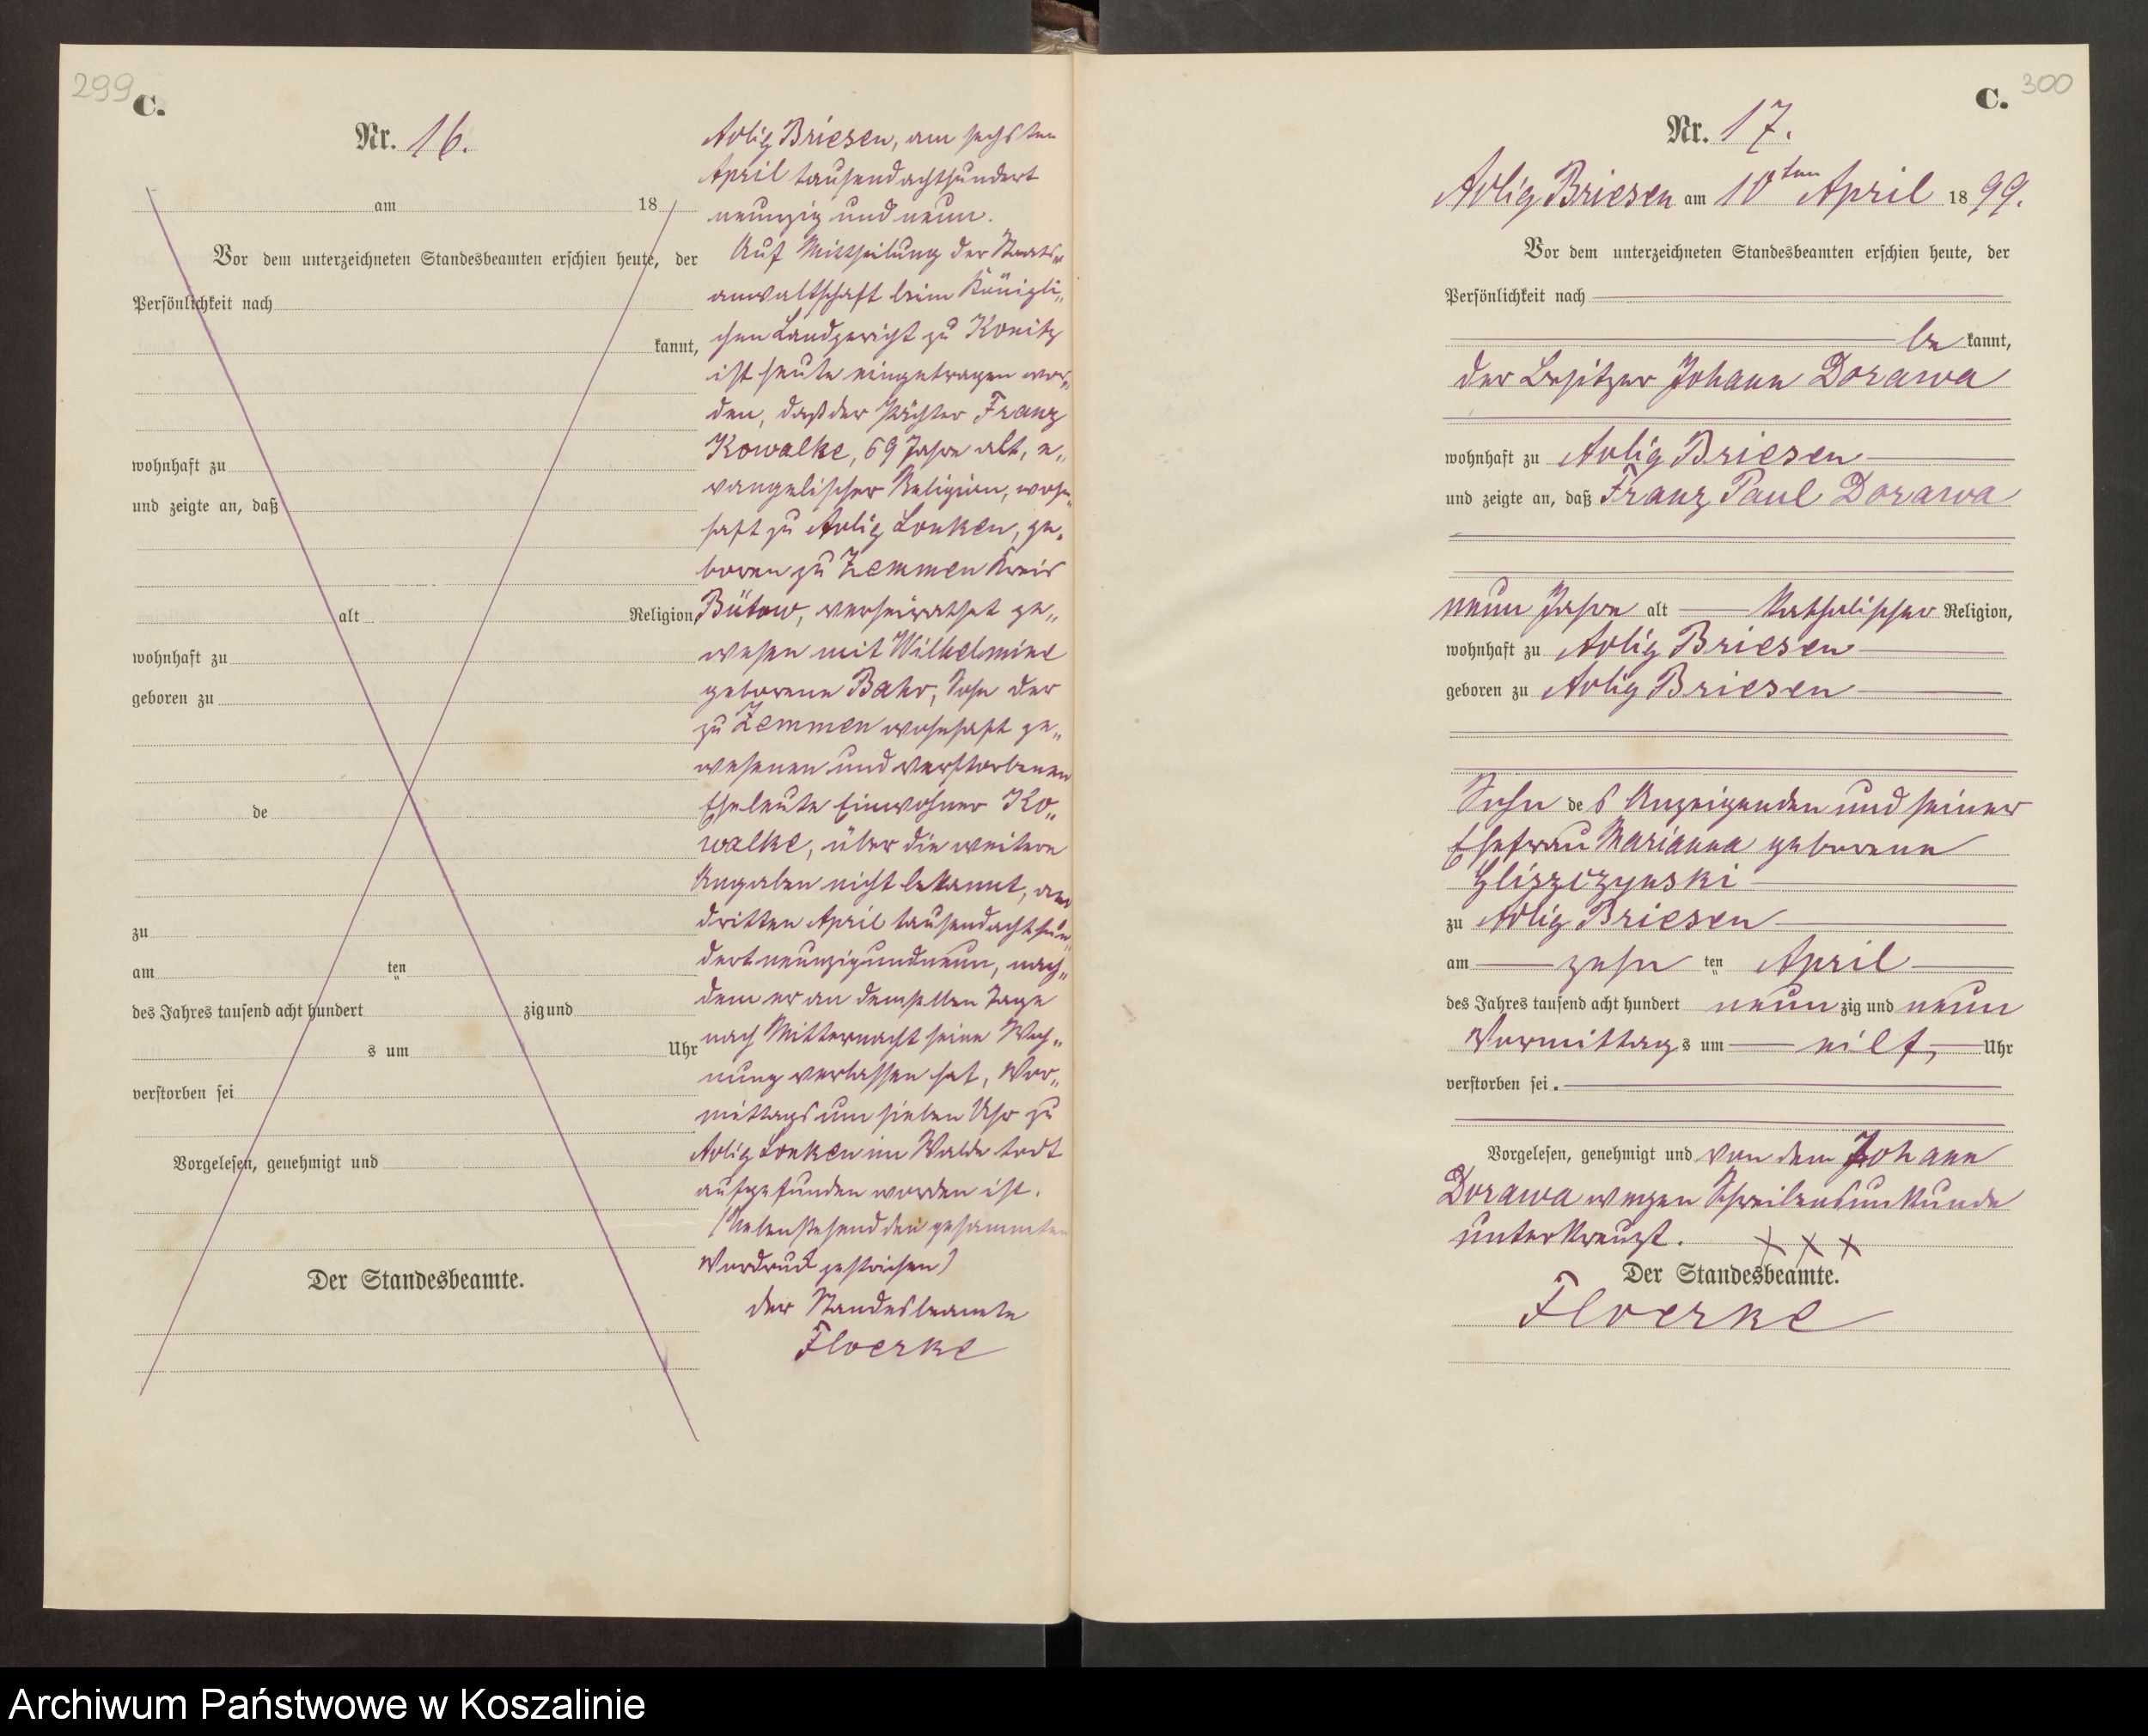 299
C.
Nr. 16.
am 18
Vor dem unterzeichneten Standesbeamten erschien heute, der
Persönlichkeit nach
kannt,
wohnhaft zu
und zeigte an, daß
alt Religion
wohnhaft zu
geboren zu
de
zu
am ten
des Jahres tausend acht hundert zig und
s um Uhr
verstorben sei
Vorgelesen, genehmigt und
Der Standesbeamte.
Adlig Briesen, am sechsten
April tausendachthundert
neunzig und neun.
Auf Mittheilung der Staats„
anwaltschaft beim Königli„
chen Landgericht zu Konitz
ist heute eingetragen wor„
den, daß der Pächter Franz
Kowalke, 69 Jahre alt, e„
vangelischer Religion, wohn„
haft zu Adlig Lonken, ge„
boren zu Zemmen Kreis
Bütow, verheirathet ge„
wesen mit Wilhelmine
geborene Bahr, Sohn der
zu Zemmen wohnhaft ge„
wesenen und verstorbenen
Eheleute Einwohner Ko„
walke, über die weitere
Angaben nicht bekannt, am
dritten April tausendachthun„
dertneunzigundneun, nach„
dem er an demselben Tage
nach Mitternacht seine Woh„
nung verlassen hat, Vor„
mittags um sieben Uhr zu
Adlig Lonken im Walde todt
aufgefunden worden ist.
(Nebenstehend den gesammten
Vordruck gestrichen)
Der Standesbeamte
Floerke
300
C.
Nr. 17.
Adlig Briesen am 10ten April 1899.
Vor dem unterzeichneten Standesbeamten erschien heute, der
Persönlichkeit nach
be kannt,
der Besitzer Johann Dorawa
wohnhaft zu Adlig Briesen
und zeigte an, daß Franz Paul Dorawa
neun Jahre alt katholischer Religion,
wohnhaft zu Adlig Briesen
geboren zu Adlig Briesen
Sohn des Anzeigenden und seiner
Ehefrau Marianna geborene
Gliszczynski
zu Adlig Briesen
am zehn ten April
des Jahres tausend acht hundert neun zig und neun
Vormittag s um eilf Uhr
verstorben sei.
Vorgelesen, genehmigt und von dem Johann
Dorawa wegen Schreibensunkunde
unterkreuzt. X X X
Der Standesbeamte.
Floerke
Archiwum Państwowe w Koszalinie